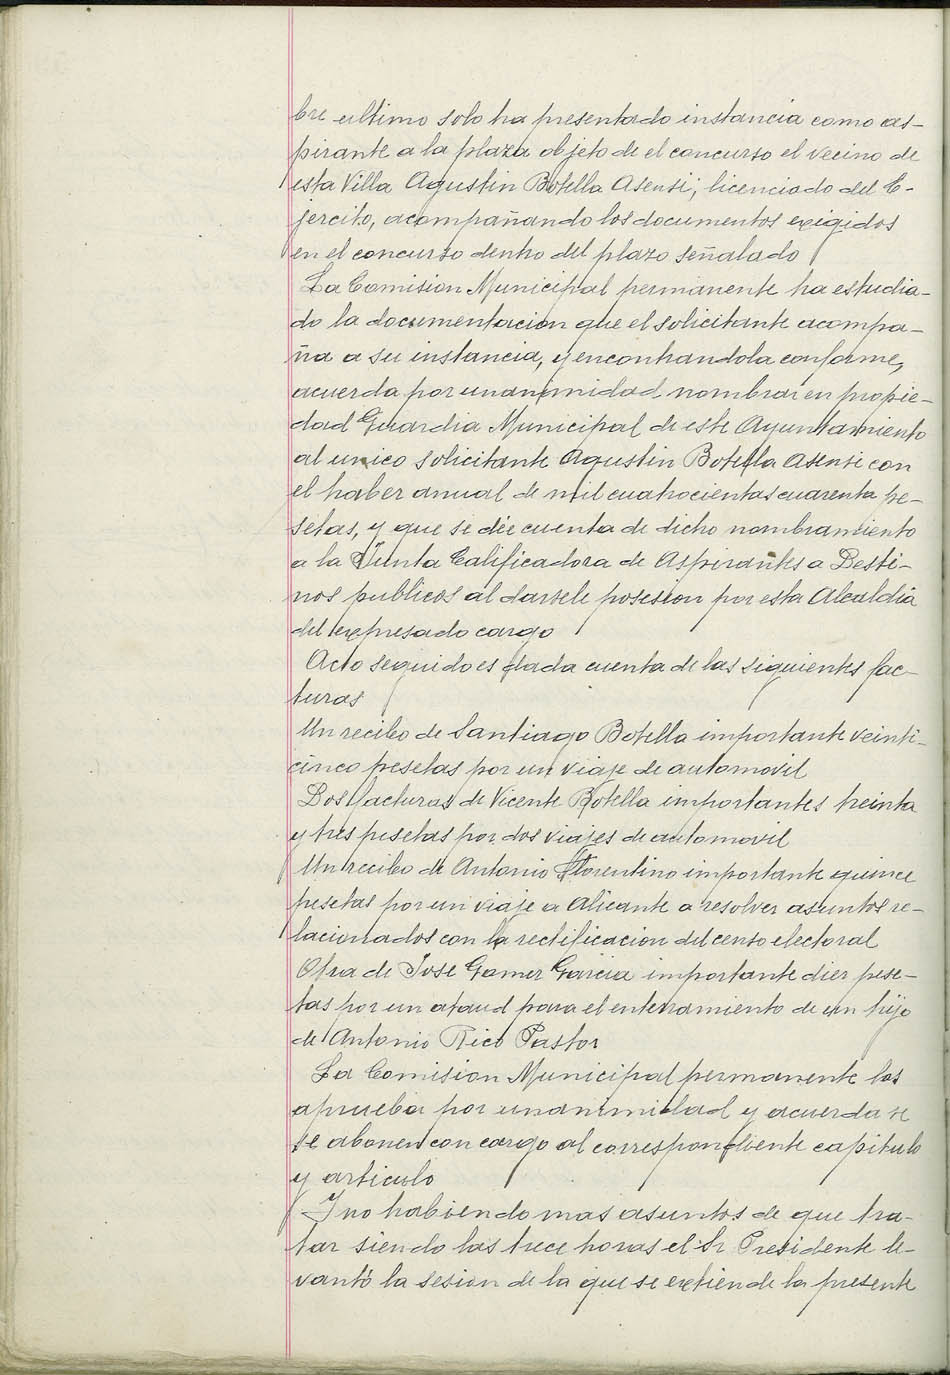 bre ultimo solo ha presentado instancia como as-
pirante a la plaza objeto de el concurso el vecino de
esta Villa Agustin Botella Asensi, licenciado del E-
jercito, acompañando los documentos exigidos
en el concurso dentro del plazo señalado
La Comision Municipal permanente ha estudia-
do la documentacion que el solicitante acompa-
ña a su instancia, y encontrandola conforme,
acuerda por unanimidad nombrar en propie-
dad Guardia Municipal de este Ayuntamiento
al unico solicitante Agustin Botella Asensi con
el haber anual de mil cuatrocientas cuarenta pe-
setas, y que se dée cuenta de dicho nombramiento
a la Junta Calificadora de Aspirantes a Desti-
nos publicos al darsele posesion por esta Alcaldia
del expresado cargo
Acto seguido es dada cuenta de las siguientes fac-
turas
Un recibo de Santiago Botella importante veinti-
cinco pesetas por un viaje de automovil
Dos facturas de Vicente Botella importantes treinta
y tres pesetas por dos viajes de automovil
Un recibo de Antonio Florentino importante quince
pesetas por un viaje a Alicante a resolver asuntos re-
lacionados con la rectificacion del censo electoral
Otra de Jose Gomez Garcia importante diez pese-
tas por un ataud para el enterramiento de un hijo
de Antonio Rico Pastor
La Comision Municipal permanente las
aprueba por unanimidad y acuerda se
se abonen con cargo al correspondiente capitulo
y articulo
Y no habiendo mas asuntos de que tra-
tar siendo las trece horas el Sr Presidente le-
vantó la sesion de la que se extiende la presente